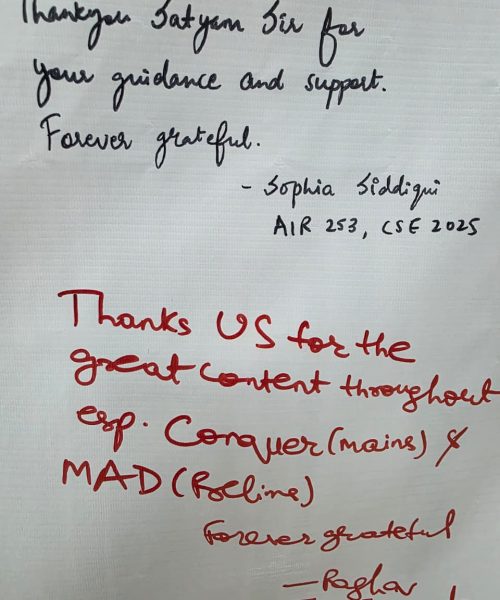 Thankyou Satyam Sir for
your guidance and support.
Forever grateful.
- Sophia Siddiqui
AIR 253, CSE 2025
Thanks US for the
great content throughout
esp. Conquer (mains) &
MAD (Prelims)
Forever grateful
— Raghav